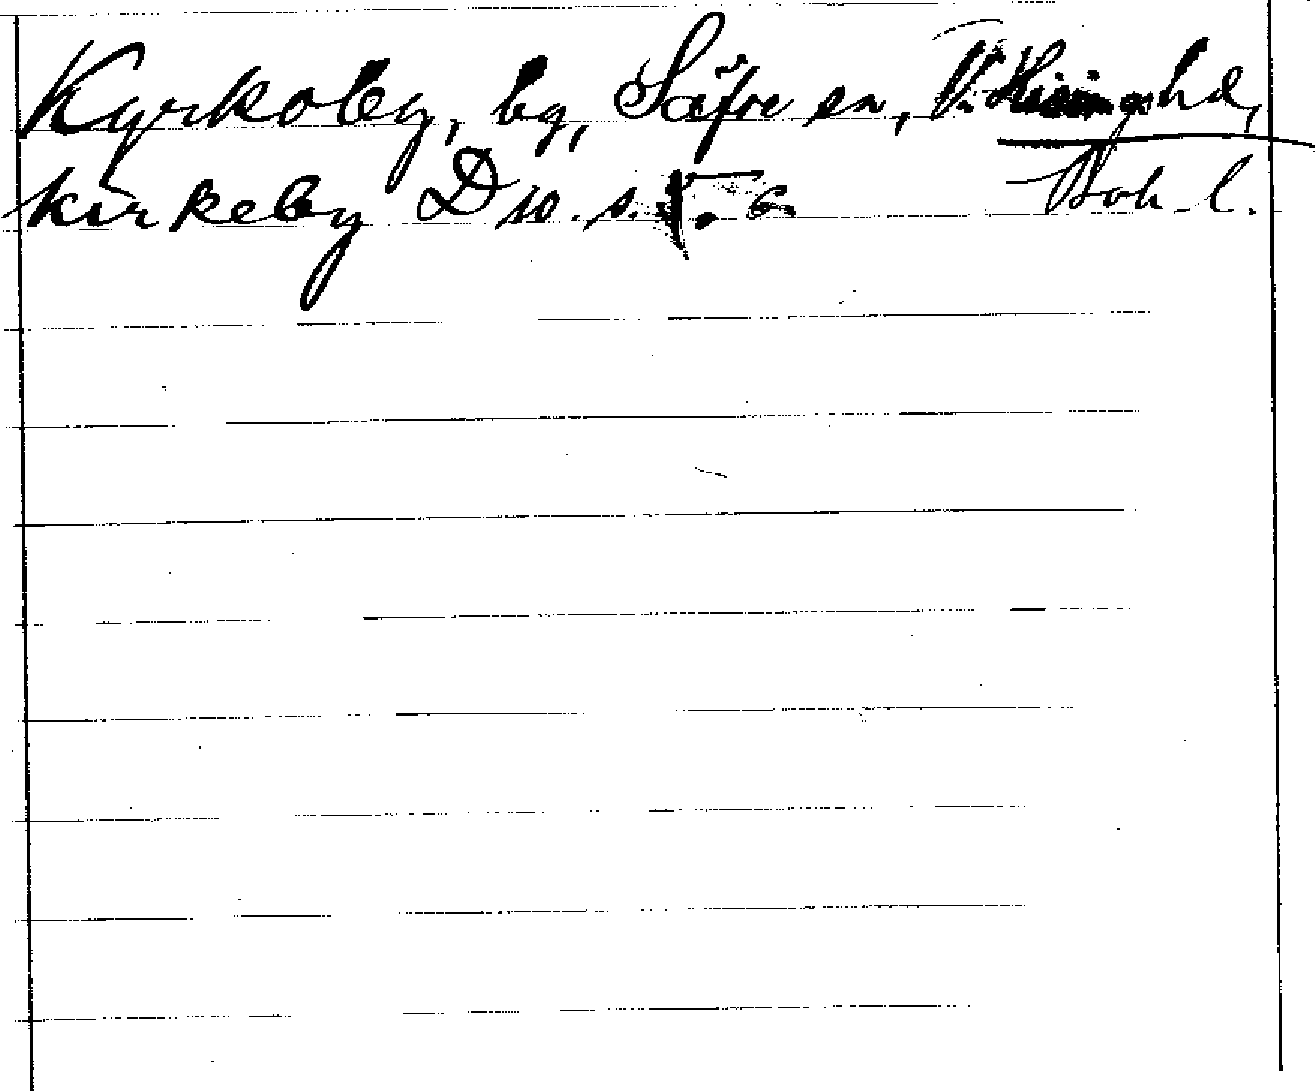 Kyrkoby, by, Säfve sn, V. Hisings hd,
Kirkeby D 10. s. 5. 6. Boh. l.